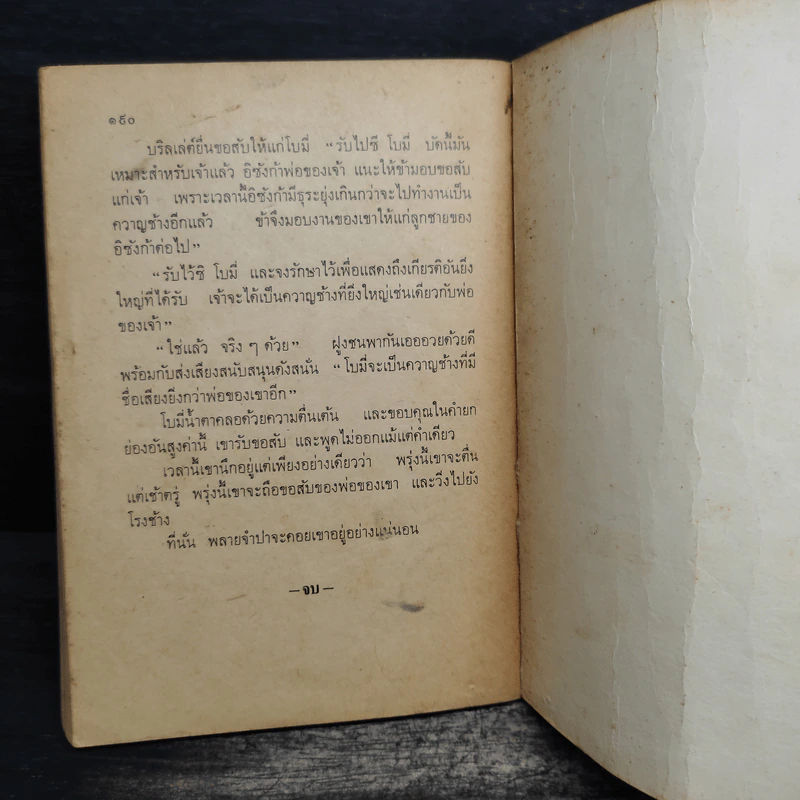 ๑๕๐
บริลเล่ต์ยื่นขอสับให้แก่โบมี่ “รับไปซี โบมี่ บัดนี้มัน
เหมาะสำหรับเจ้าแล้ว อิซังก้าพ่อของเจ้า แนะให้ข้ามอบขอสับ
แก่เจ้า เพราะเวลานี้อิซังก้ามีธุระยุ่งเกินกว่าจะไปทำงานเป็น
ควาญช้างอีกแล้ว ข้าจึงมอบงานของเขาให้แก่ลูกชายของ
อิซังก้าต่อไป”
“รับไว้ซิ โบมี่ และจงรักษาไว้เพื่อแสดงถึงเกียรติอันยิ่ง
ใหญ่ที่ได้รับ เจ้าจะได้เป็นควาญช้างที่ยิ่งใหญ่เช่นเดียวกับพ่อ
ของเจ้า”
“ใช่แล้ว จริง ๆ ด้วย” ฝูงชนพากันเอออวยด้วยดี
พร้อมกับส่งเสียงสนับสนุนดังสนั่น “โบมี่จะเป็นควาญช้างที่มี
ชื่อเสียงยิ่งกว่าพ่อของเขาอีก”
โบมี่น้ำตาคลอด้วยความตื่นเต้น และขอบคุณในคำยก
ย่องอันสูงค่านี้ เขารับขอสับ และพูดไม่ออกแม้แต่คำเดียว
เวลานี้เขานึกอยู่แต่เพียงอย่างเดียวว่า พรุ่งนี้เขาจะตื่น
แต่เช้าตรู่ พรุ่งนี้เขาจะถือขอสับของพ่อของเขา และวิ่งไปยัง
โรงช้าง
ที่นั่น พลายจำปาจะคอยเขาอยู่อย่างแน่นอน
– จบ –